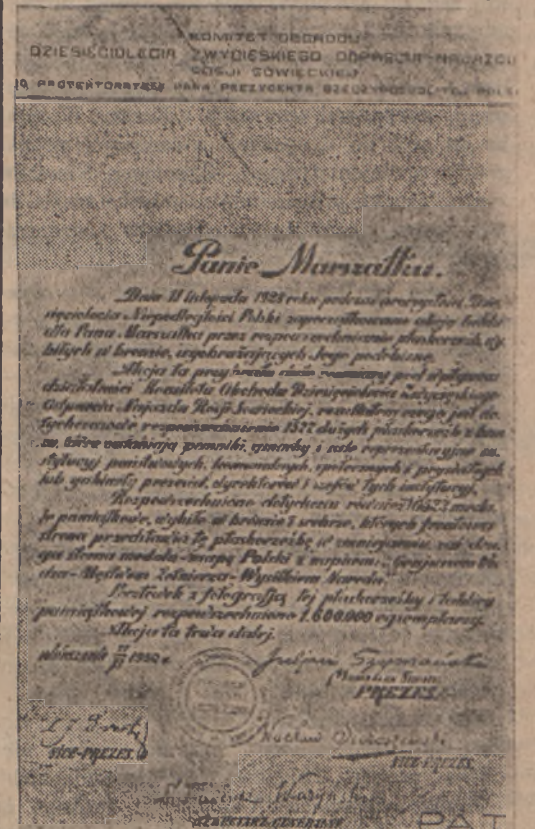 KOMITET OBCHODU
DZIESIĘCIOLECIA ZWYCIĘSKIEGO ODPARCIA NAJAZDU
ROSJI SOWIECKIEJ
PROTEKTORATEM PANA PREZYDENTA RZECZYPOSPOLITEJ POLSK
Panie Marszałku.
Dnia 11 listopada 1928 roku, podczas uroczystości Dzie-
sięciolecia Niepodległości Polski zapoczątkowano akcję hołdu
dla Pana Marszałka przez rozpowszechnianie płaskorzeźb, wy-
bitych w bronzie, wyobrażających Jego podobiznę.
Akcja ta pod wpływem
działalności Komitetu Obchodu Dziesięciolecia Zwycięskiego
Odparcia Najazdu Rosji Sowieckiej, rezultatem czego jest do-
tychczasowe rozpowszechnienie 1577 dużych płaskorzeźb z bron-
zu, które pomniki, gmachy i sale reprezentacyjne in-
stytucyj państwowych, komunalnych, społecznych i prywatnych
lub gabinety prezesów, dyrektorów i szefów tych instytucyj.
Rozpowszechniono dotychczas również med
le pamiątkowe, wybite w bronzie i srebrze, których frontowa
strona przedstawia tę płaskorzeźbę w zmniejszeniu, zaś dru-
ga strona medalu - mapę Polski z napisem:
Męstwem Żołnierza - Wysiłkiem Narodu.
Pocztówek z fotografją tej płaskorzeźby i tablicy
pamiątkowej rozpowszechniono 1.600.000 egzemplarzy.
Akcja ta trwa dalej.
1930 r.
Juljan Szymański
PREZES
VICE-PREZES
Wacław Sieroszewski
VICE-PREZES
SEKRETARZ GENERALNY
PAT